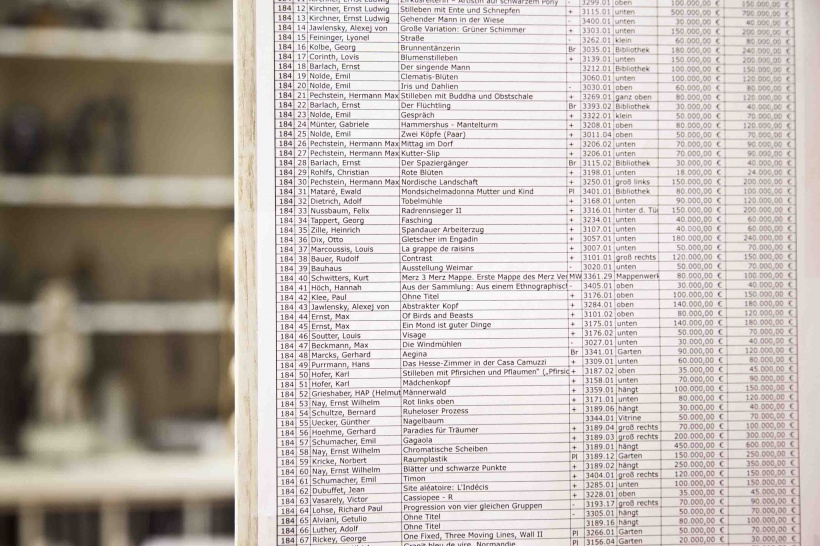 184 12 Kirchner, Ernst Ludwig Stilleben mit Ente und Schnepfen + 3115.01 unten 500.000,00 € 700.000,00 €
184 13 Kirchner, Ernst Ludwig Gehender Mann in der Wiese - 3400.01 unten 30.000,00 € 40.000,00 €
184 14 Jawlensky, Alexej von Große Variation: Grüner Schimmer + 3303.01 unten 150.000,00 € 200.000,00 €
184 15 Feininger, Lyonel Straße - 3262.01 klein 60.000,00 € 80.000,00 €
184 16 Kolbe, Georg Brunnentänzerin Br 3035.01 Bibliothek 180.000,00 € 240.000,00 €
184 17 Corinth, Lovis Blumenstilleben + 3139.01 unten 150.000,00 € 200.000,00 €
184 18 Barlach, Ernst Der singende Mann 3212.01 Bibliothek 100.000,00 € 150.000,00 €
184 19 Nolde, Emil Clematis-Blüten 3060.01 unten 100.000,00 € 120.000,00 €
184 20 Nolde, Emil Iris und Dahlien - 3030.01 oben 60.000,00 € 80.000,00 €
184 21 Pechstein, Hermann Max Stilleben mit Buddha und Obstschale + 3269.01 ganz oben 80.000,00 € 120.000,00 €
184 22 Barlach, Ernst Der Flüchtling Br 3393.02 Bibliothek 30.000,00 € 40.000,00 €
184 23 Nolde, Emil Gespräch + 3322.01 klein 50.000,00 € 70.000,00 €
184 24 Münter, Gabriele Hammershus - Mantelturm + 3208.01 oben 80.000,00 € 120.000,00 €
184 25 Nolde, Emil Zwei Köpfe (Paar) - 3011.04 oben 50.000,00 € 70.000,00 €
184 26 Pechstein, Hermann Max Mittag im Dorf + 3206.02 unten 70.000,00 € 90.000,00 €
184 27 Pechstein, Hermann Max Kutter-Slip + 3206.01 unten 70.000,00 € 90.000,00 €
184 28 Barlach, Ernst Der Spaziergänger Br 3115.02 Bibliothek 30.000,00 € 40.000,00 €
184 29 Rohlfs, Christian Rote Blüten + 3198.01 unten 18.000,00 € 24.000,00 €
184 30 Pechstein, Hermann Max Nordische Landschaft + 3250.01 groß links 150.000,00 € 200.000,00 €
184 31 Mataré, Ewald Mondsichelmadonna Mutter und Kind Pl 3401.01 Bibliothek 80.000,00 € 100.000,00 €
184 32 Dietrich, Adolf Tobelmühle + 3168.01 unten 90.000,00 € 120.000,00 €
184 33 Nussbaum, Felix Radrennsieger II + 3316.01 hinter d. Tü 150.000,00 € 200.000,00 €
184 34 Tappert, Georg Fasching + 3234.01 unten 40.000,00 € 60.000,00 €
184 35 Zille, Heinrich Spandauer Arbeiterzug + 3107.01 unten 40.000,00 € 60.000,00 €
184 36 Dix, Otto Gletscher im Engadin + 3057.01 unten 180.000,00 € 240.000,00 €
184 37 Marcoussis, Louis La grappe de raisins + 3007.01 unten 50.000,00 € 70.000,00 €
184 38 Bauer, Rudolf Contrast + 3101.01 groß rechts 120.000,00 € 150.000,00 €
184 39 Bauhaus Ausstellung Weimar - 3020.01 unten 50.000,00 € 70.000,00 €
184 40 Schwitters, Kurt Merz 3 Merz Mappe. Erste Mappe des Merz Ver MW 3361.29 Mappenwerk 80.000,00 € 100.000,00 €
184 41 Höch, Hannah Aus der Sammlung: Aus einem Ethnographisch - 3405.01 oben 30.000,00 € 40.000,00 €
184 42 Klee, Paul Ohne Titel + 3176.01 oben 100.000,00 € 150.000,00 €
184 43 Jawlensky, Alexej von Abstrakter Kopf + 3284.01 oben 140.000,00 € 180.000,00 €
184 44 Ernst, Max Of Birds and Beasts + 3101.02 oben 80.000,00 € 120.000,00 €
184 45 Ernst, Max Ein Mond ist guter Dinge + 3175.01 unten 140.000,00 € 180.000,00 €
184 46 Soutter, Louis Visage + 3176.02 unten 50.000,00 € 70.000,00 €
184 47 Beckmann, Max Die Windmühlen - 3027.01 unten 30.000,00 € 40.000,00 €
184 48 Marcks, Gerhard Aegina Br 3341.01 Garten 90.000,00 € 120.000,00 €
184 49 Purrmann, Hans Das Hesse-Zimmer in der Casa Camuzzi + 3309.01 unten 60.000,00 € 80.000,00 €
184 50 Hofer, Karl Stilleben mit Pfirsichen und Pflaumen" („Pfirsic + 3187.02 oben 35.000,00 € 45.000,00 €
184 51 Hofer, Karl Mädchenkopf + 3158.01 unten 70.000,00 € 90.000,00 €
184 52 Grieshaber, HAP (Helmut Männerwald + 3359.01 hängt 100.000,00 € 150.000,00 €
184 53 Nay, Ernst Wilhelm Rot links oben + 3171.01 unten 80.000,00 € 120.000,00 €
184 54 Schultze, Bernard Ruheloser Prozess + 3189.06 hängt 30.000,00 € 40.000,00 €
184 55 Uecker, Günther Nagelbaum 3344.01 Vitrine 50.000,00 € 70.000,00 €
184 56 Hoehme, Gerhard Paradies für Träumer + 3189.04 groß rechts 70.000,00 € 100.000,00 €
184 57 Schumacher, Emil Gagaola + 3189.03 groß rechts 200.000,00 € 300.000,00 €
184 58 Nay, Ernst Wilhelm Chromatische Scheiben + 3189.01 hängt 450.000,00 € 600.000,00 €
184 59 Kricke, Norbert Raumplastik Pl 3189.12 Garten 150.000,00 € 250.000,00 €
184 60 Nay, Ernst Wilhelm Blätter und schwarze Punkte + 3189.02 hängt 250.000,00 € 350.000,00 €
184 61 Schumacher, Emil Timon + 3404.01 groß rechts 120.000,00 € 150.000,00 €
184 62 Dubuffet, Jean Site aléatoire: L'Indécis + 3285.01 unten 100.000,00 € 150.000,00 €
184 63 Vasarely, Victor Cassiopee - R + 3228.01 oben 35.000,00 € 45.000,00 €
184 64 Lohse, Richard Paul Progression von vier gleichen Gruppen - 3193.17 groß rechts 70.000,00 € 90.000,00 €
184 65 Alviani, Getulio Ohne Titel - 3305.01 hängt 50.000,00 € 70.000,00 €
184 66 Luther, Adolf Ohne Titel 3189.16 hängt 80.000,00 € 100.000,00 €
184 67 Rickey, George One Fixed, Three Moving Lines, Wall II Pl 3266.01 Garten 50.000,00 € 70.000,00 €
Pl 3156.04 Garten 20.000,00 € 30.000,00 €